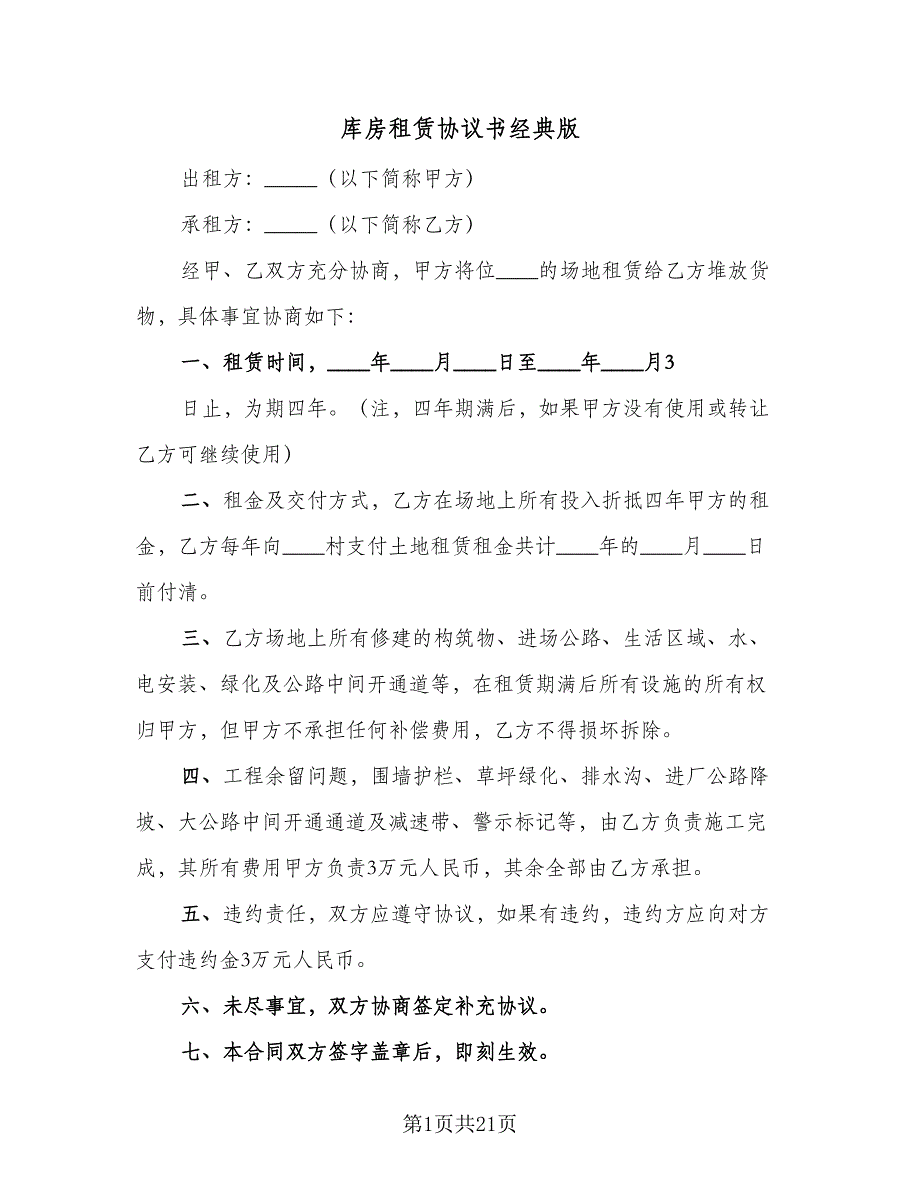 库房租赁协议书经典版
出租方：_____（以下简称甲方）
承租方：_____（以下简称乙方）
经甲、乙双方充分协商，甲方将位____的场地租赁给乙方堆放货
物，具体事宜协商如下：
一、租赁时间，____年____月____日至____年____月3
日止，为期四年。（注，四年期满后，如果甲方没有使用或转让
乙方可继续使用）
二、租金及交付方式，乙方在场地上所有投入折抵四年甲方的租
金，乙方每年向____村支付土地租赁租金共计____年的____月____日
前付清。
三、乙方场地上所有修建的构筑物、进场公路、生活区域、水、
电安装、绿化及公路中间开通道等，在租赁期满后所有设施的所有权
归甲方，但甲方不承担任何补偿费用，乙方不得损坏拆除。
四、工程余留问题，围墙护栏、草坪绿化、排水沟、进厂公路降
坡、大公路中间开通通道及减速带、警示标记等，由乙方负责施工完
成，其所有费用甲方负责3万元人民币，其余全部由乙方承担。
五、违约责任，双方应遵守协议，如果有违约，违约方应向对方
支付违约金3万元人民币。
六、未尽事宜，双方协商签定补充协议。
七、本合同双方签字盖章后，即刻生效。
第1页共21页